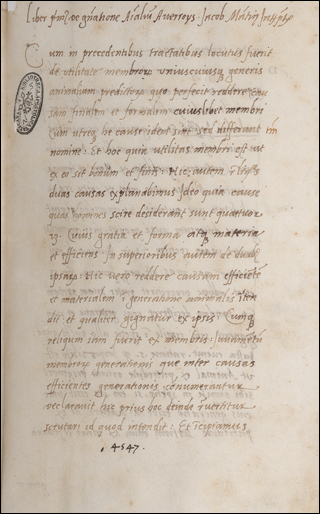 Liber de gñatione Aĩaliũ Averroys. Jacob Mãtin
Cum in precedentibus tractatibus locutus fuerit
de utilitate membrorƺ uniuscuiusq generis
animalium predictorƺ quo perfecit reddere cau
sam finalem et formalem cuiuslibet membri
Cum utreq he cause idem sint sed differant in
nomine: Et hoc quia utilitas membri est ut
ex eo sit bonum et finis: Hic autem
duas causas explanabimus Ideo quia cause
quas homines scire desiderant sunt quattuor
Cuius gratia et forma atq materia
et efficiens: In superioribus autem de duab
Hic vero reddere causam efficiẽtẽ
et materialem ĩ generatione animalis
dit et qualiter gignãtur ex ipsis
reliqum iam fuerit ex membris
membrorƺ generationis que inter causas
efficientes generationis connumerantur
declaravit hic prius hoc deinde revertitur
scrutari id quod intendit: Et ĩcipiamus
.4547.